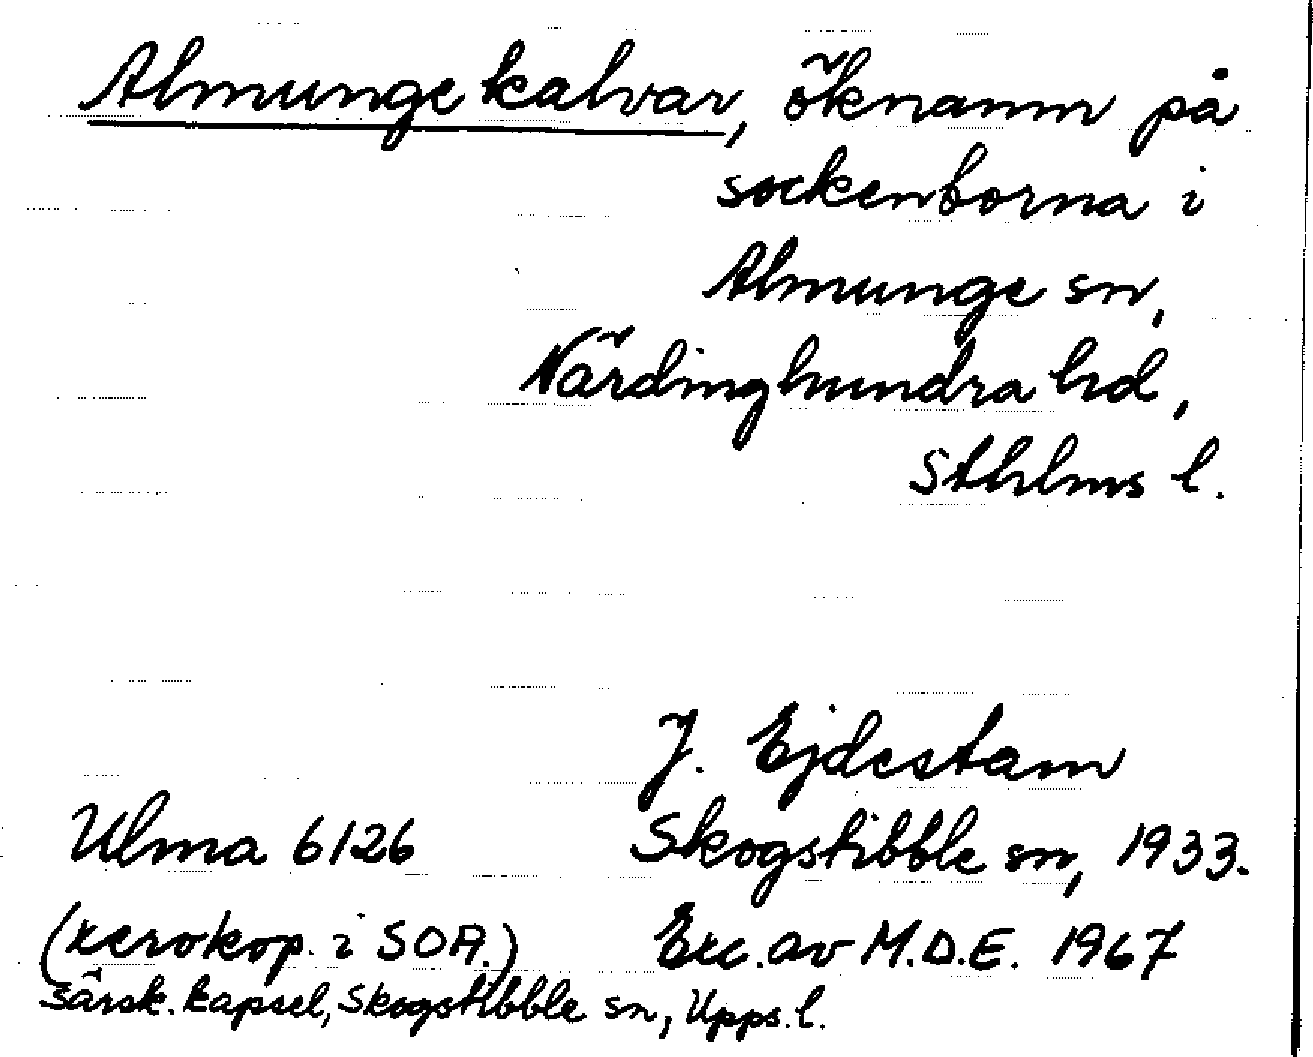 Almungekalvar, öknamn på
sockenborna i
Almunge sn,
Närdinghundra hd,
Sthlms l.
J. Ejdestam
Ulma 6126 Skogstibble sn, 1933.
(xerokop. i SOA.) Exc. av M.D.E. 1967
särsk. kapsel, Skogstibble sn, Upps. l.